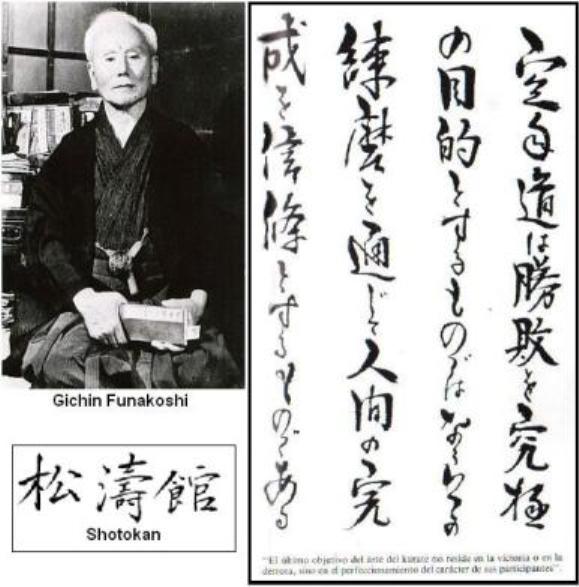 Gichin Funakoshi
松濤館
Shotokan
空手道は勝敗を究極
の目的とするものではなく
練磨を通じて人間の完
成を信條とするものである
"El último objetivo del arte del karate no reside en la victoria o en la
derrota, sino en el perfeccionamiento del carácter de sus participantes".